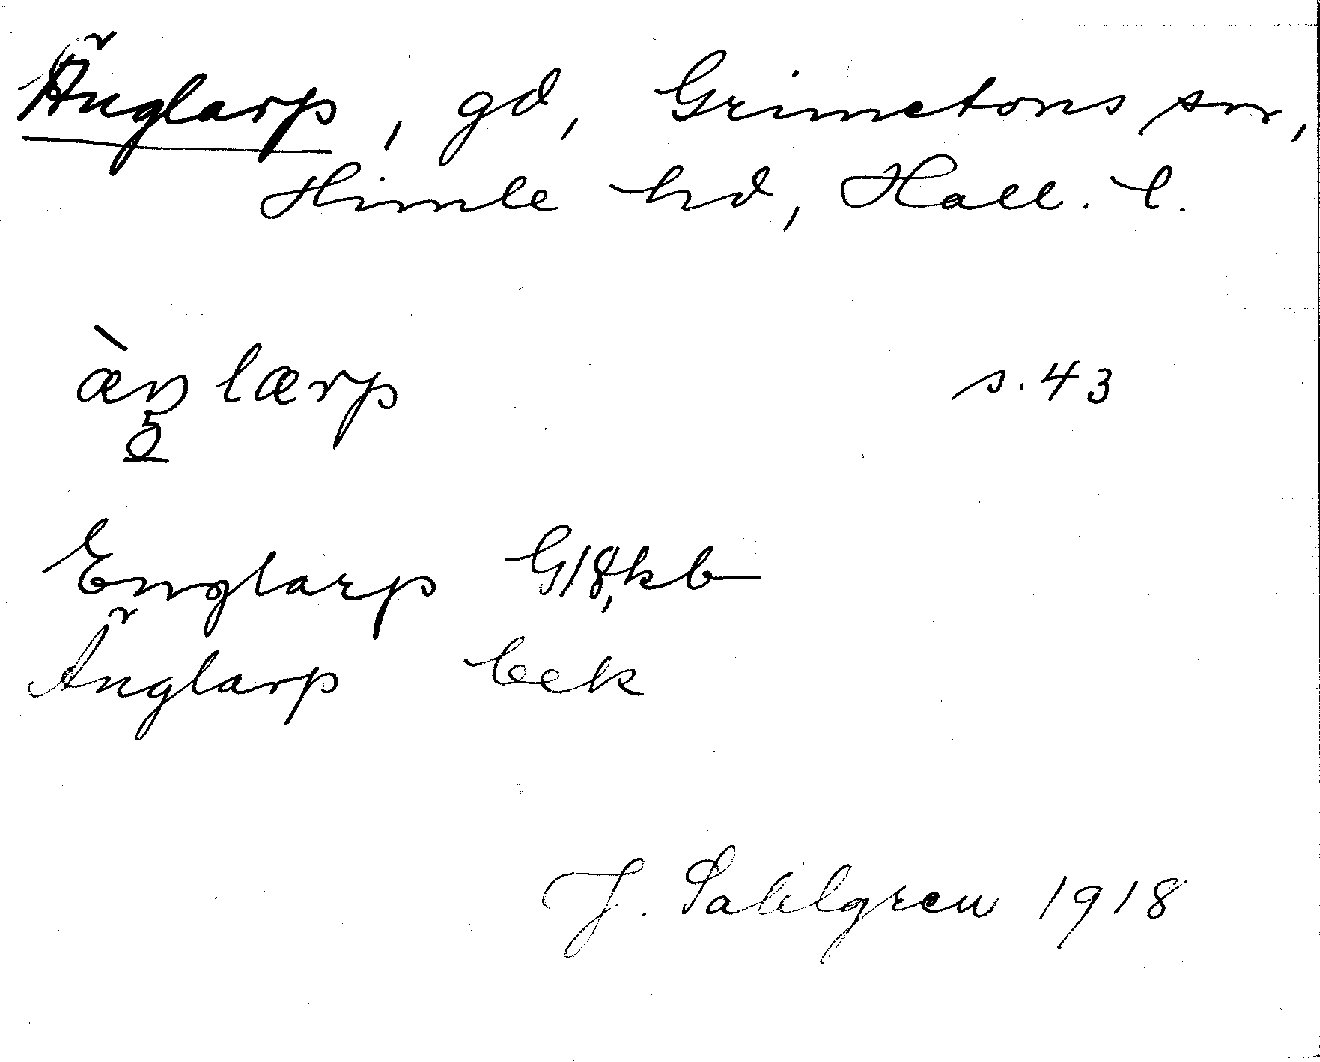 Änglarp, gd, Grimetons sn,
Himle hd, Hall. l.
æ̀ŋlærp s. 43
Englarp G18, kb
Änglarp bek
J. Sahlgren 1918